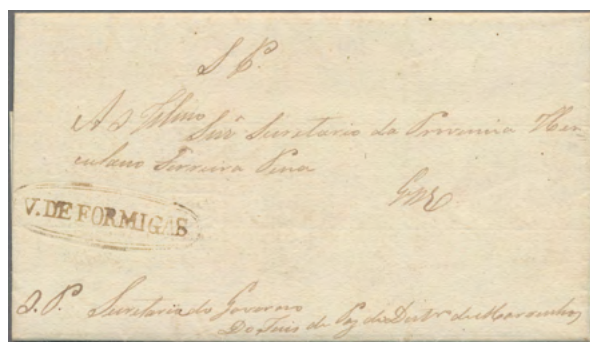 S P.
Snr Secretario da Provincia Her-
culano Ferreira Pena
V. DE FORMIGAS
S. P. Secretaria do Governo
Do Juis de Paz do Destr. de